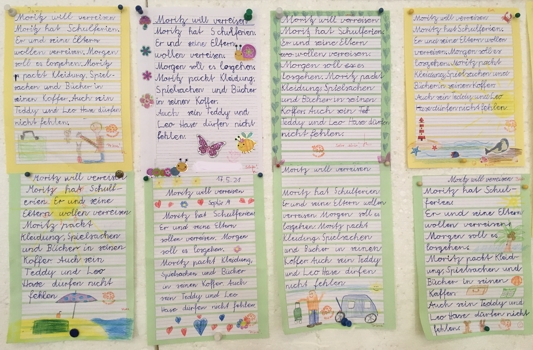 Moritz will verreisen
Moritz hat Schulferien.
Er und seine Eltern
wollen verreisen. Morgen
soll es losgehen. Moritz
packt Kleidung, Spiel-
sachen und Bücher
in seinen Koffer. Auch sein
Teddy und Leo Hase dürfen
nicht fehlen.
Moritz will verreisen
Moritz hat Schulferien.
Er und seine Eltern
wollen verreisen.
Morgen soll es losgehen.
Moritz packt Kleidung,
Spielsachen und Bücher
in seinen Koffer.
Auch sein Teddy und
Leo Hase dürfen nicht
fehlen.
Moritz will verreisen
Moritz hat Schulferien.
Er und seine Eltern
wollen verreisen.
Morgen soll es
losgehen. Moritz packt
Kleidung, Spielsachen
und Bücher in seinen
Koffer. Auch sein
Teddy und Leo Hase dürfen
nicht fehlen.
Moritz will verreisen
Moritz hat Schulferien.
Er und seine Eltern wollen
verreisen. Morgen soll es
losgehen. Moritz packt
Kleidung, Spielsachen und
Bücher in seinen Koffer.
Auch sein Teddy und Leo
Hase dürfen nicht fehlen.
Moritz will verreisen
Moritz hat Schulf-
erien. Er und seine
Eltern wollen verreisen
Moritz packt
Kleidung, Spielsachen
und Bücher in seinen
Koffer. Auch sein
Teddy und Leo
Hase dürfen nicht
fehlen
17.5.21
Moritz will verreisen
Moritz hat Schulferien.
Er und seine Eltern
wollen verreisen. Morgen
soll es losgehen.
Moritz packt Kleidung,
Spielsachen und Bücher
in seinen Koffer. Auch
sein Teddy und Leo
Hase dürfen nicht fehlen.
Moritz will verreisen
Moritz hat Schulferien.
Er und seine Eltern wollen
verreisen. Morgen soll es
losgehen. Moritz packt
Kleidung, Spielsachen
und Bücher in seinen
Koffer. Auch sein Teddy
und Leo Hase dürfen
nicht fehlen.
Moritz will verreisen
Moritz hat Schul-
ferien.
Er und seine Eltern
wollen verreisen.
Morgen soll es
losgehen.
Moritz packt Kleid-
ung, Spielsachen und
Bücher in seinen
Koffer.
Auch sein Teddy und
Leo Hase dürfen nicht
fehlen.